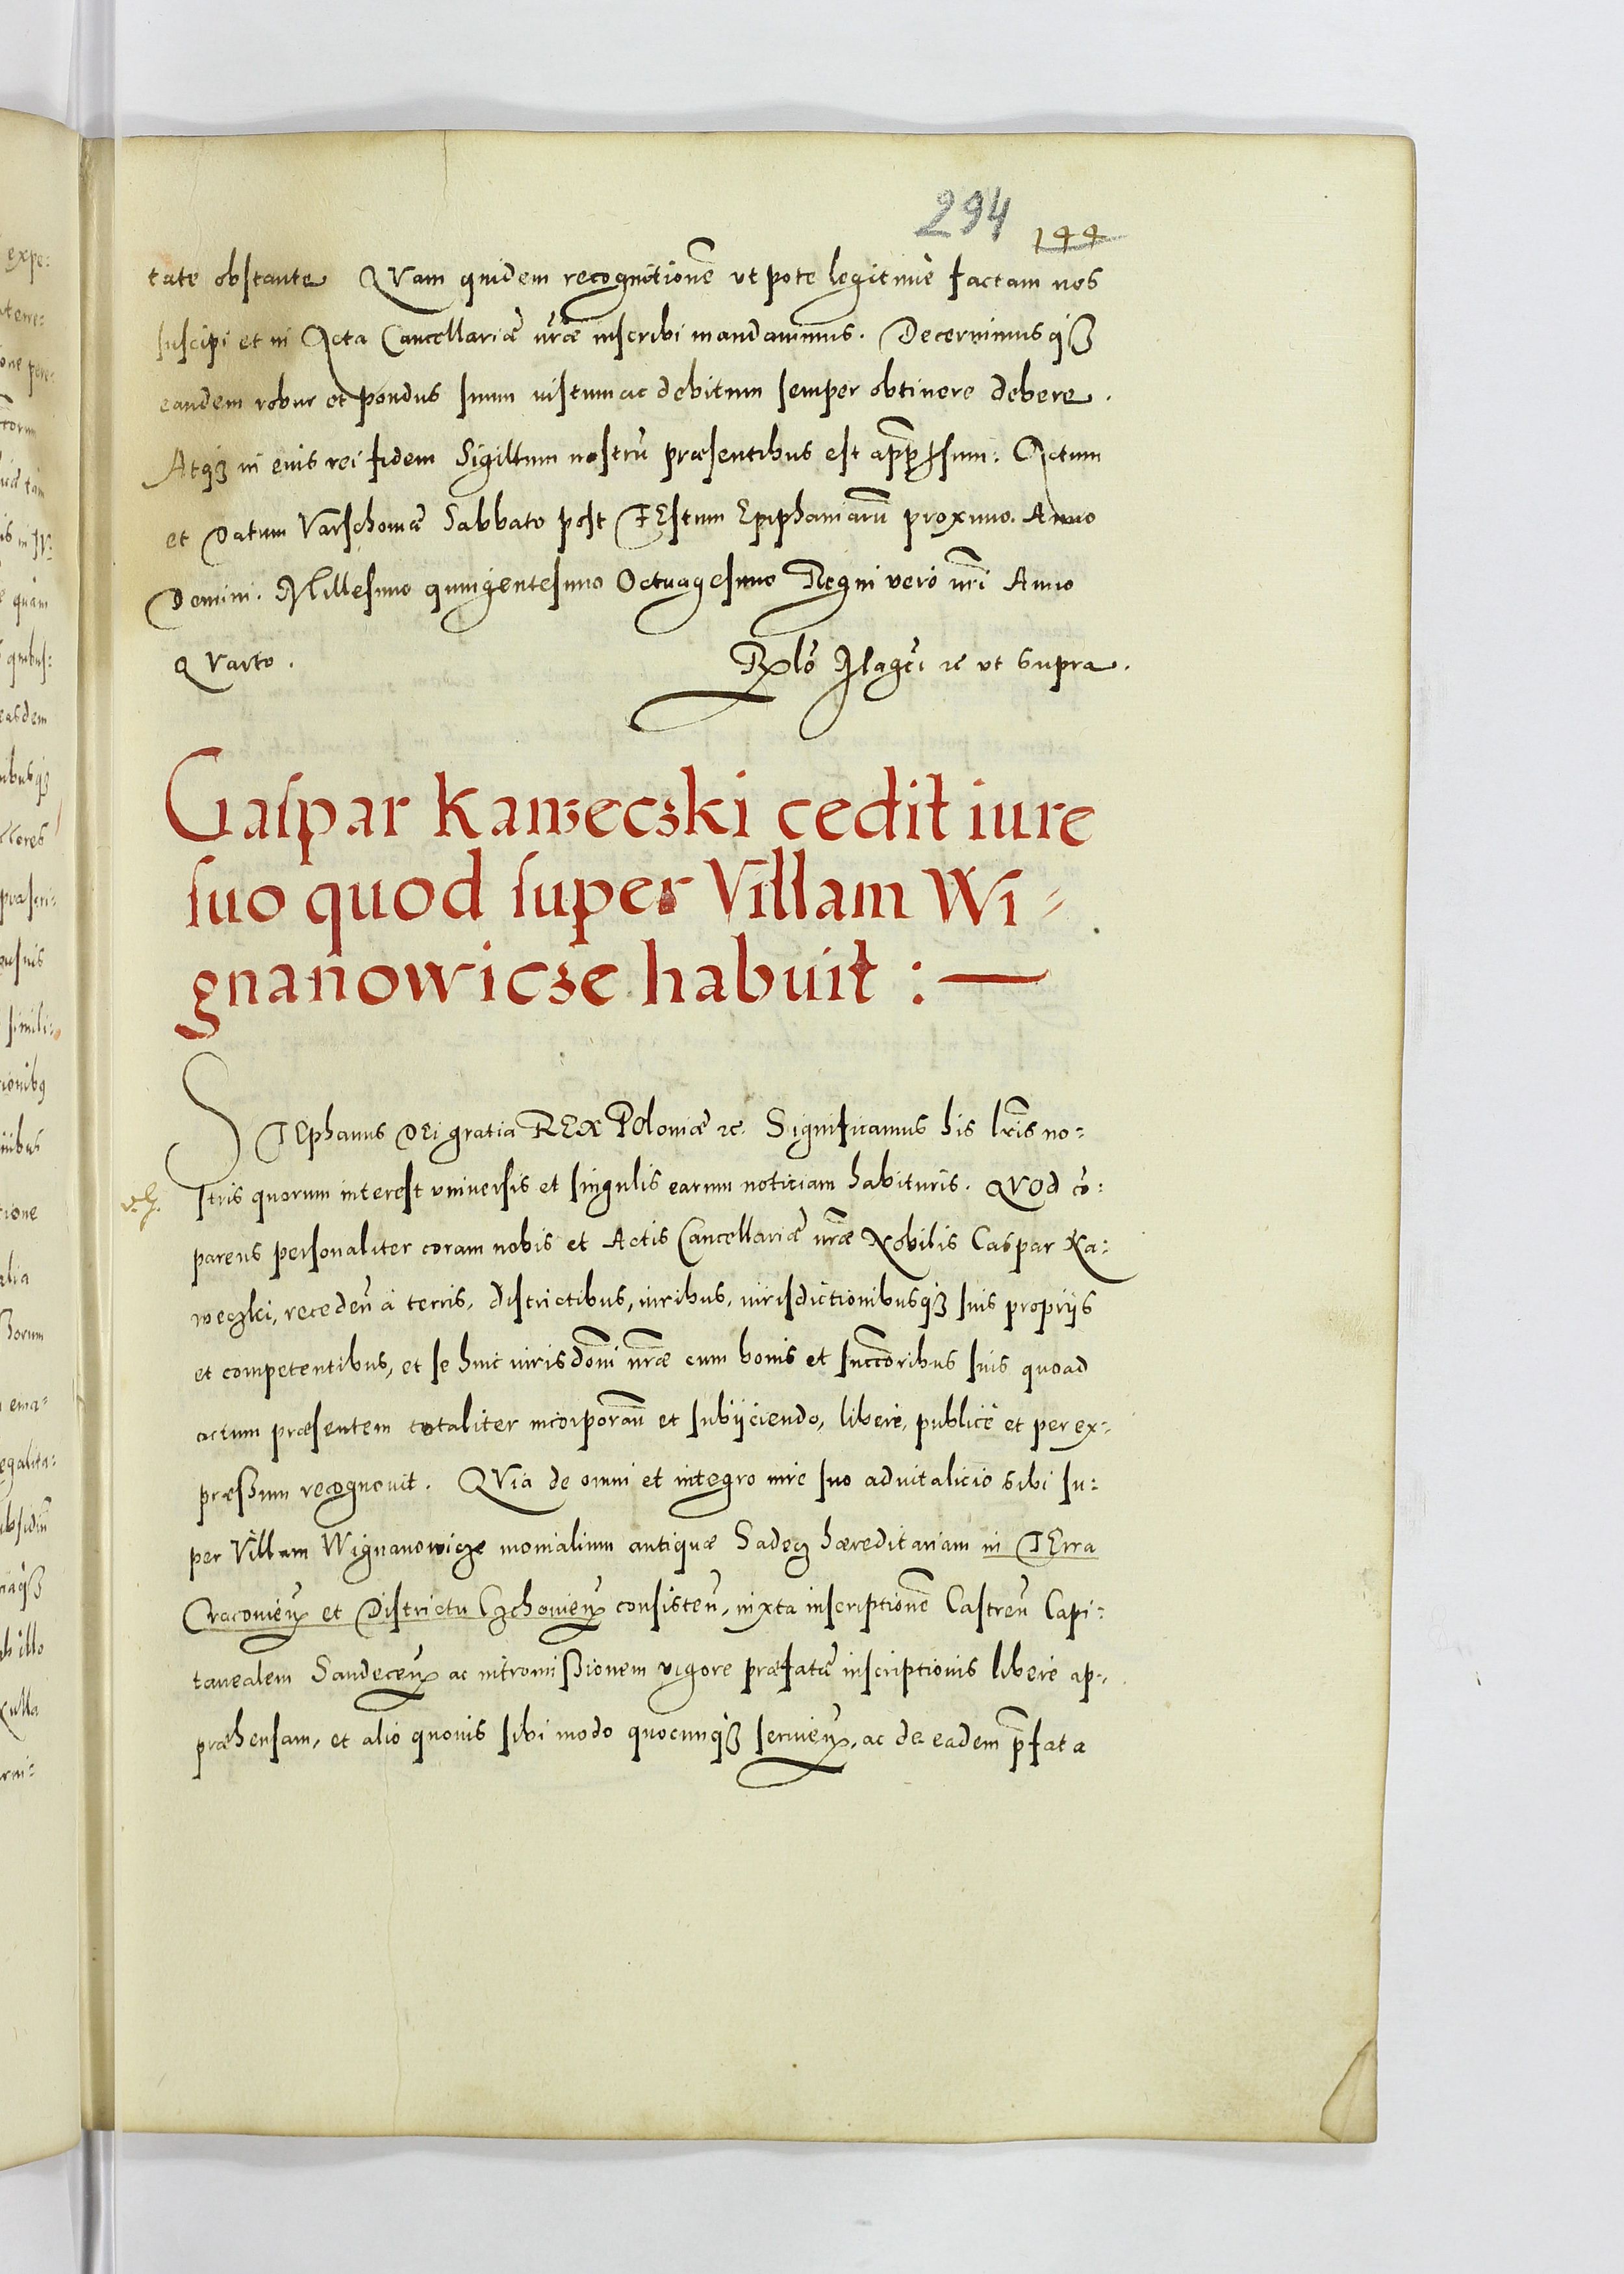 294
144
tate obstante QVam quidem recognitionē vt pote legitimè factam nos
suscipi et in Acta Cancellariæ nr̃æ inscribi mandauimus. Decernimusq́ꝫ
eandem robur et pondus suum iustum ac debitum semper obtinere debere.
Atqꝫ in eius rei fidem Sigillum nostrū præsentibus est
Actum
et Datum Varschouiæ Sabbato post FEstum Epiphaniarū proximo. Anno
Domini. Millesimo quingentesimo Octuagesimo Regni verò nr̃i Anno
QVarto.
ut supra.
Caspar Kaweczki cedit iure
suo quod super Villam Wi-
gnanowicze habuit: —
STEphanus DEi gratia REX POloniæ ꝛc. Significamus his lr̃is no=
stris quorum interest vniuersis et singulis earum noticiam habituris. QVOd cō=
parens personaliter coram nobis et Actis Cancellariæ nr̃æ Nobilis Caspar Ka=
weczki, recedeñ à terris, districtibus, iuribus, iurisdictionibusq́ꝫ suis proprijs
et competentibus, et se huic iurisdoñi nr̃æ cum bonis et succ̃oribus suis quoad
actum præsentem totaliter incorporañ et subijciendo, liberè, publicè et per ex=
præssum recognouit. QVia de omni et integro iure suo aduitalicio sibi su=
per Villam Wignanowicze monialium antiquæ Sadecz hæreditariam in TErra
Cracouieñ et Districtu Czchouieñ consisteñ, iuxta inscriptionē Castreñ Capi=
tanealem Sandeceñ ac intromissionem vigore præfatæ inscriptionis liberè ap=
præhensam, et alio quouis sibi modo quocunqꝫ seruieñ, ac de eadem p̃fata